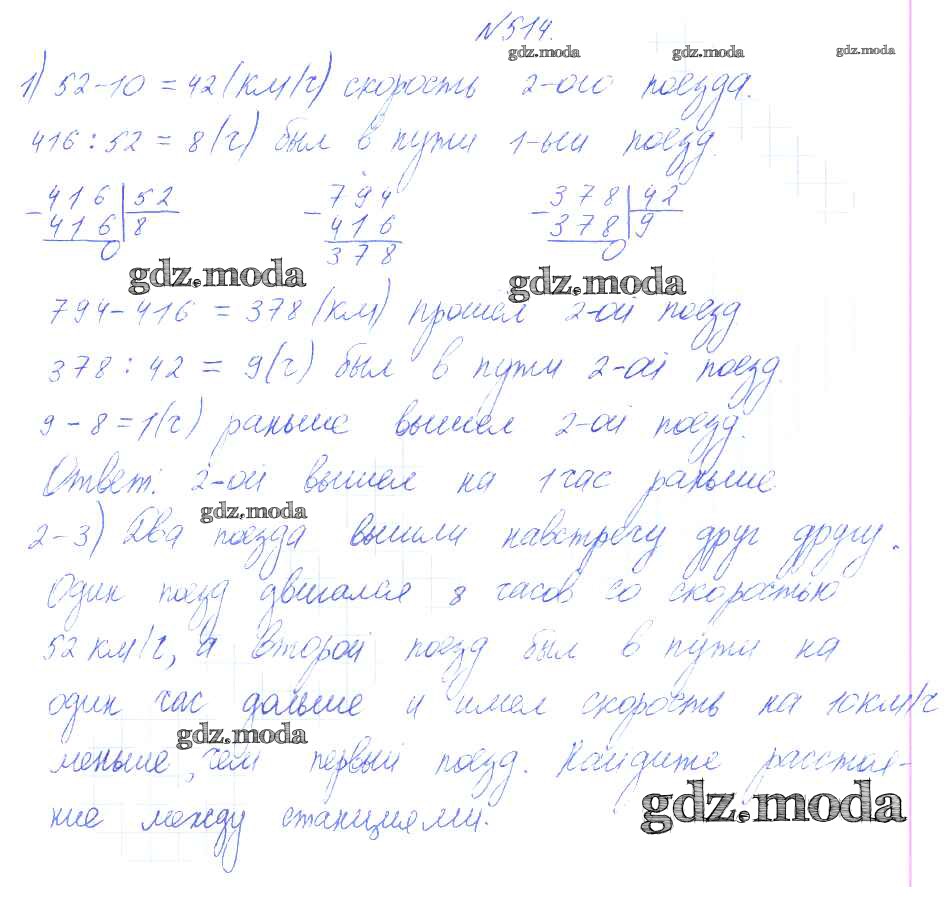 №514.
gdz.moda gdz.moda gdz.moda
1) 52-10 = 42 (км/ч) скорость 2-ого поезда.
416 : 52 = 8 (ч) был в пути 1-ый поезд.
- 416 | 52 - 794 - 378 | 42
416 | 8 416 378 | 9
0 378 0
gdz.moda gdz.moda
794-416 = 378 (км) прошёл 2-ой поезд
378 : 42 = 9 (ч) был в пути 2-ой поезд.
9 - 8 = 1 (ч) раньше вышел 2-ой поезд.
Ответ: 2-ой вышел на 1 час раньше
gdz.moda
2-3) Два поезда вышли навстречу друг другу.
Один поезд двигался 8 часов со скоростью
52 км/ч, а второй поезд был в пути на
один час дольше и имел скорость на 10 км/ч
gdz.moda
меньше, чем первый поезд. Найдите расстоя-
gdz.moda
ние между станциями.